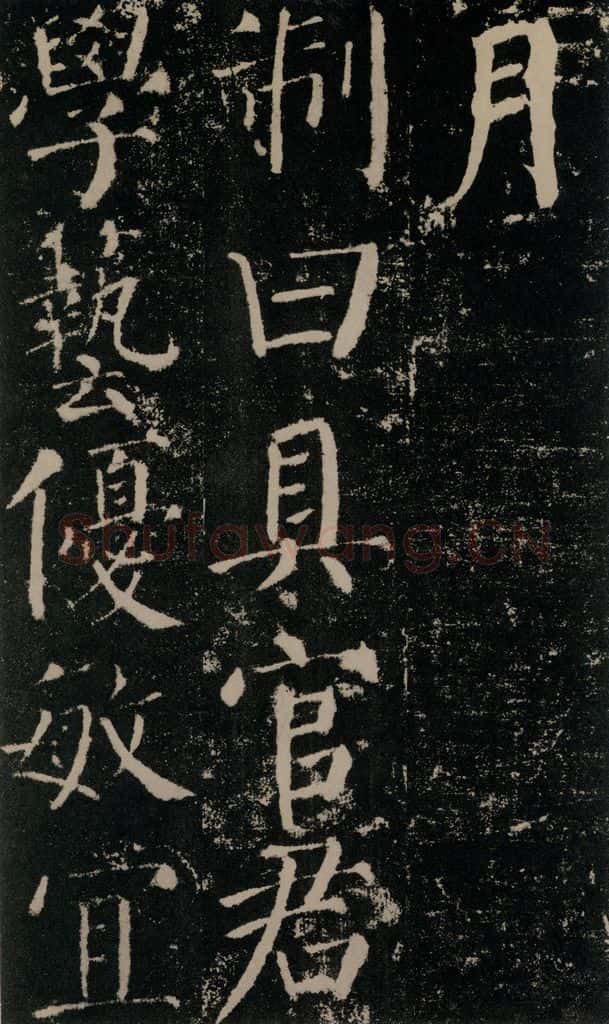 月
制曰具官君
學藝優敏宜
Shufawang.CN